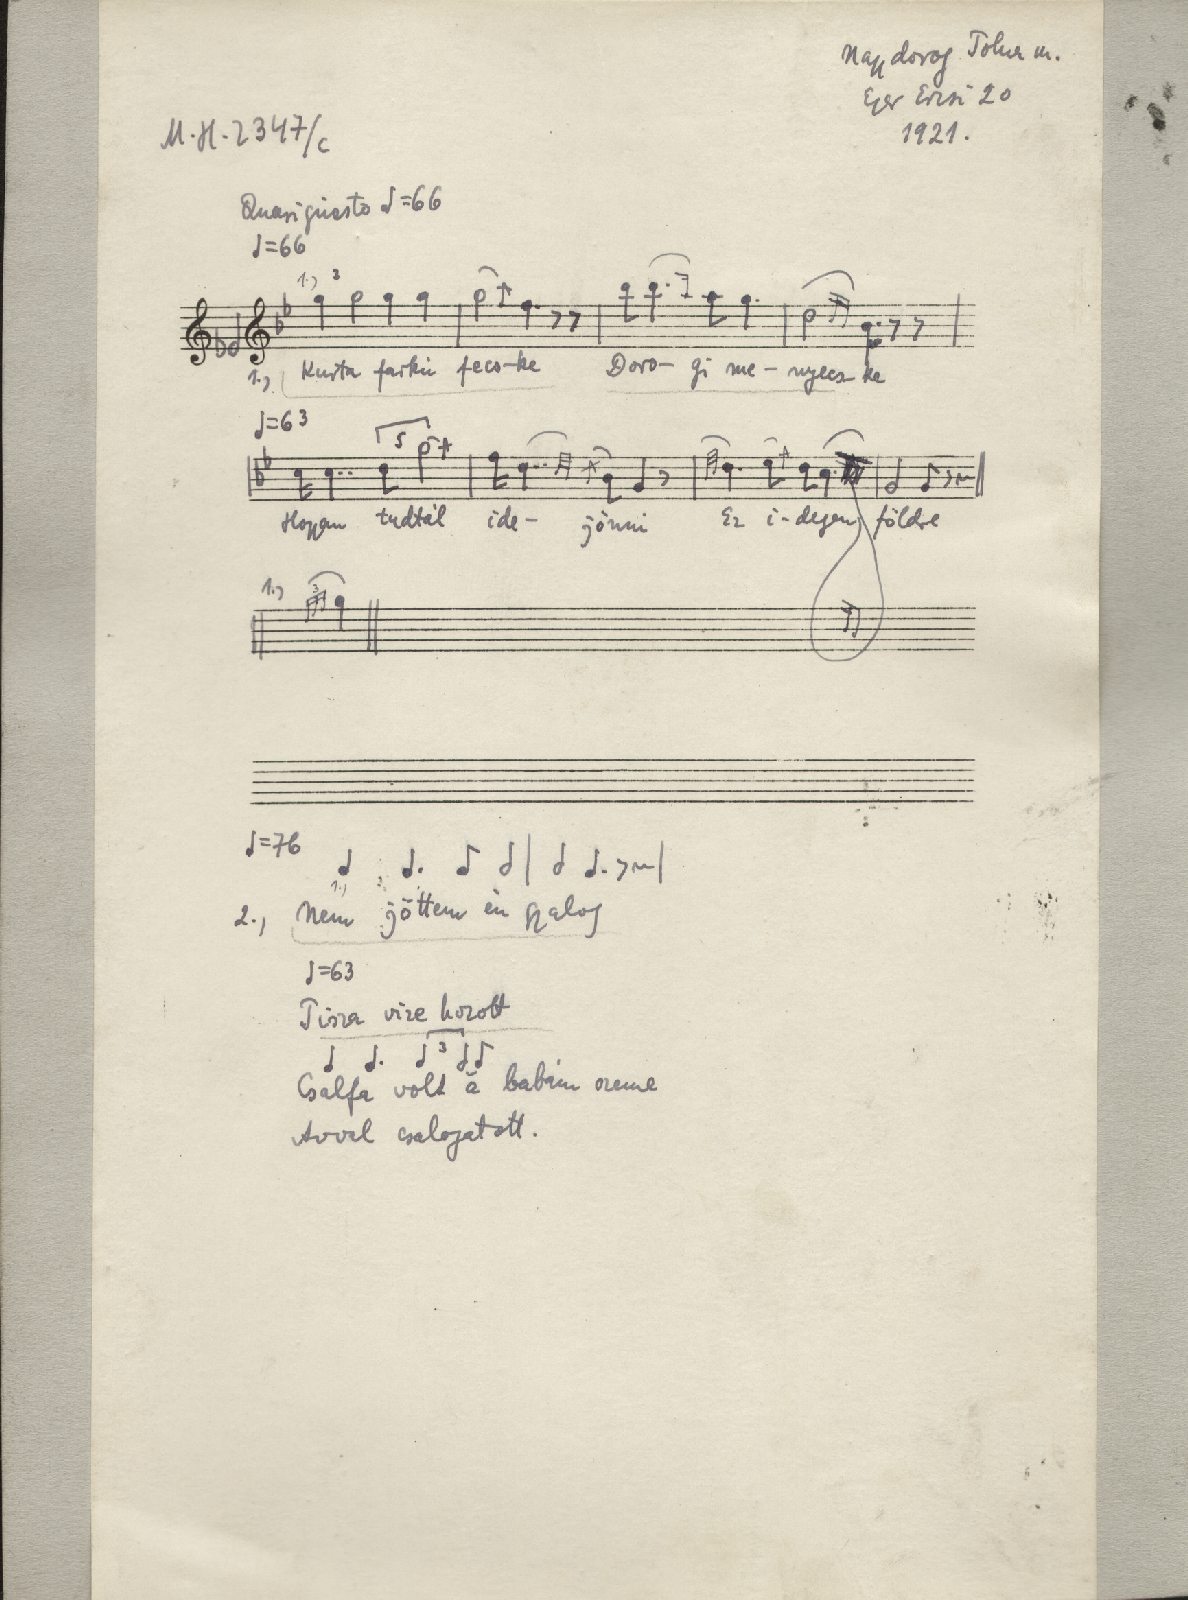 Nagydorog Tolna m.
Eger Erzsi 20
1921.
M.H.2347/c
Quasi giusto ♩=66
♩=66
1.) 3
1.) Kurta farkú fecs-ke Doro-gi me-nyecs-ke
♩=63
5
Hogyan tudtál ide-jönni Ez i-degen földre
1.) 3
♩=76
1.)
2.) Nem jöttem én gyalog
♩=63
Tisza vize hozott
3
Csalfa volt ă babám szeme
Avval csalogatott.